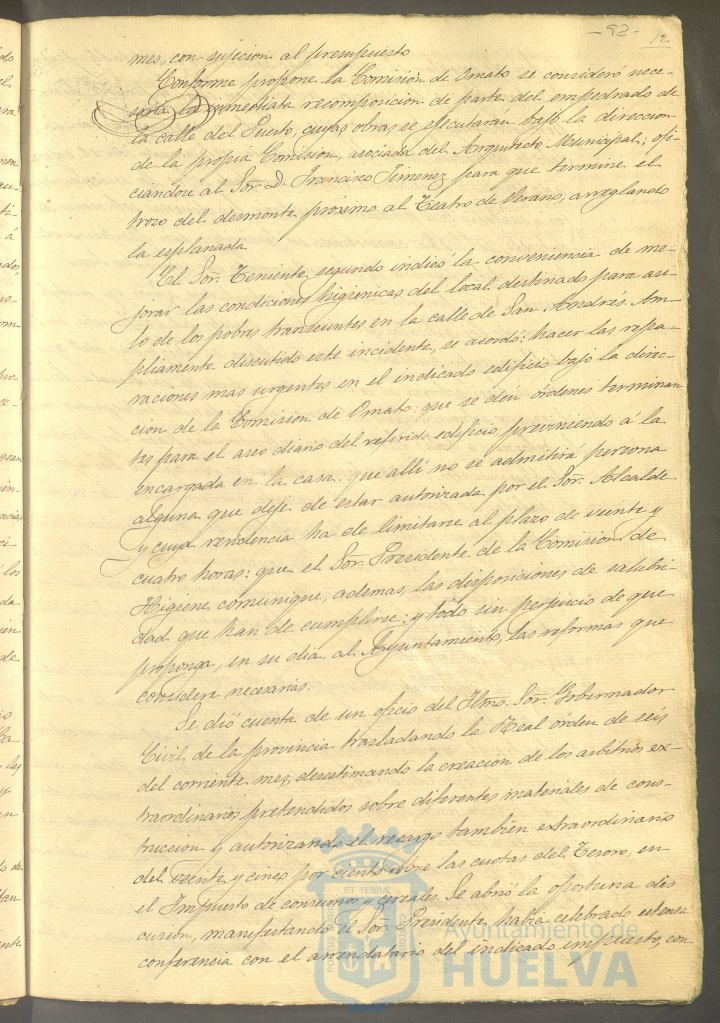 -92- 12
mes, con sujecion al presupuesto
Conforme propone la Comisión de Ornato se consideró nece-
saria la inmediata recomposicion de parte del empedrado de
la calle del Puerto, cuyas obras se ejecutaran bajo la direccion
de la propia Comision, asociada del Arquitecto Municipal; ofi-
ciandose al Sor. D. Francisco Jimenez para que termine el
trozo del desmonte próximo al Teatro de Verano, arreglando
la esplanada
El Sor. Teniente segundo indicó la conveniencia de me-
jorar las condiciones higienicas del local destinado para asi-
lo de los pobres transeuntes en la calle de San Andrés. Am-
pliamente discutido este incidente, se acordó: hacer las repa-
raciones mas urgentes en el indicado edificio bajo la direc-
cion de la Comision de Ornato: que se den órdenes terminan
tes para el aseo diario del referido edificio, previniendo á la
encargada en la casa, que allí no se admitira persona
alguna que deje de estar autorizada por el Sor. Alcalde
y cuya residencia ha de limitarse al plazo de veinte y
cuatro horas: que el Sor. Presidente de la Comision de
Higiene comunique, ademas, las disposiciones de salubri-
dad que han de cumplirse: y todo sin perjuicio de que
proponga, en su dia, al Ayuntamiento, las reformas que
considere necesarias.
Se dió cuenta de un oficio del Iltmo. Sor. Gobernador
Civil de la provincia trasladando la Real orden de seis
del corriente mes, desestimando la creacion de los arbitrios ex-
traordinarios pretendidos sobre diferentes materiales de cons-
truccion y autorizando el recargo tambien extraordinario
del veinte y cinco por ciento sobre las cuotas del Tesoro, en
el Impuesto de consumos y cereales. Se abrió la oportuna dis
cusion, manifestando el Sor. Presidente, habia celebrado estensa
conferencia con el arrendatario del indicado impuesto, con
Ayuntamiento de
HUELVA